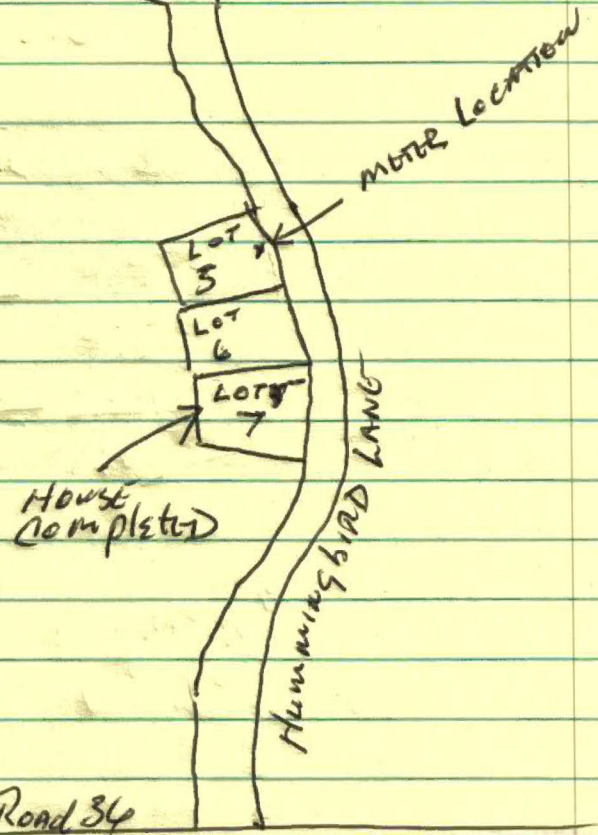 METER LOCATION
LOT
5
LOT
6
LOT
7
HOUSE
COMPletED
HummingbIRD LANE
Road 34